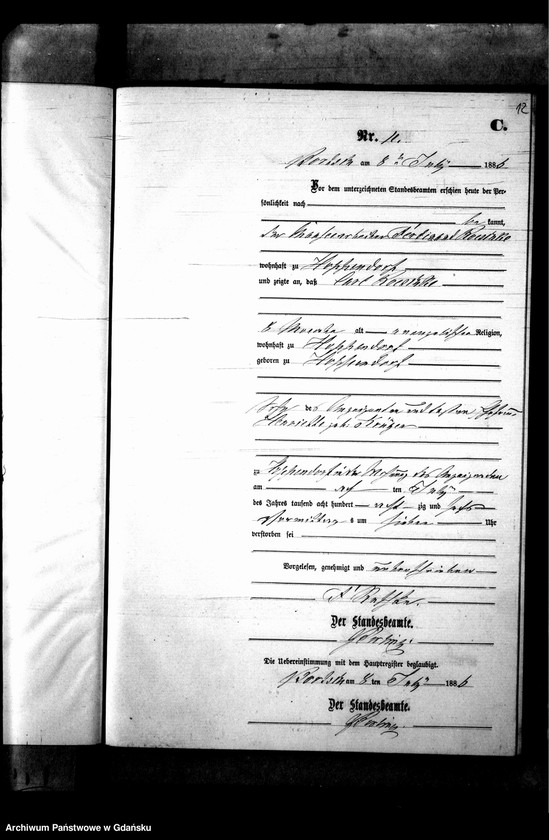 12
C.
Nr. 11.
am 8 ten July 1886
Vor dem unterzeichneten Standesbeamten erschien heute der Per-
sönlichkeit nach
be kannt,
der Ferdinand
wohnhaft zu Hoppendorf
und zeigte an, daß Carl
8 Monate alt evangelischer Religion,
wohnhaft zu Hoppendorf
geboren zu Hoppendorf
Sohn des Anzeigenden und dessen Ehefrau
Henriette geb. Krüger
zu Hoppendorf in der Wohnung des Anzeigenden
am acht ten July
des Jahres tausend acht hundert acht zig und sechs
Vormittags um sieben Uhr
verstorben sei
Vorgelesen, genehmigt und unterschrieben
Der Standesbeamte.
Die Uebereinstimmung mit dem Hauptregister beglaubigt.
am 8 ten July 1886
Der Standesbeamte.
Archiwum Państwowe w Gdańsku